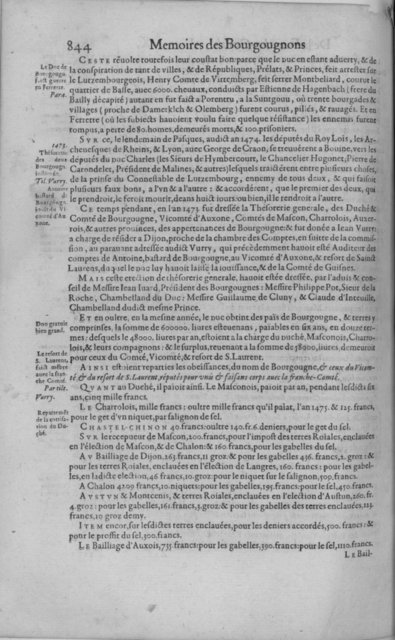 844 Memoires des Bourgougnons
CESTE révolte toutefois leur coustat bon: parce que le duc en estant adverty, & de
la conspiration de tant de villes, & de Républiques, Prélats, & Princes, feit arrester sur
le Lutzembourgeois, Henry Comte de Virtemberg, feit serrer Montbeliard, courut le
quartier de Basle, avec 6000. chevaux, conduicts par Estienne de Hagenbach (frere du
Bailly décapité) autant en fut faict à Porentru, a la Suntgouu, où trente bourgades &
villages (proche de Damerkich & Olemberg) furent courus, pillés, & ravagés. Et en
Ferrette (où les subiects hauoient voulu faire quelque résistance) les ennemis furent
rompus, a perte de 80. homes, demeurés morts, & 100. prisoniers.
SVR ce, le lendemain de Pasques, audict an 1474. les députés du Roy Loïs, les Ar-
chevesques de Rheins, & Lyon, avec George de Craon, se treuvèrent a Bouine, vers les
députés du duc Charles (les Sieurs de Hymbercourt, le Chancelier Hugonet, Pierre de
Carondelet, Président de Malines, & autres) lesquels traictèrent entre plusieurs choses,
de la prinse du Connestable de Lutzembourg, ennemy de tous deux, & qui faisoit
plusieurs faux bons, a l'vn & a l'autre: & accordèrent, que le premier des deux, qui
le prendroit, le feroit mourir, deans huict iours, ou bien, il le rendroit a l'autre.
CE temps pendant, en l'an 1473. fut dressée la Thésorerie generale, des Duché &
Comté de Bourgougne, Vicomté d'Auxone, Comtés de Mascon, Chartolois, Auxer-
rois, & autres provinces, des appertenances de Bourgougne: & fut donnée a Iean Vurry:
a charge de résider a Dijon, proche de la chambre des Comptes, en suitte de la commis-
sion, au paravant adressée audict Vurry, qui précédemment hauoit esté Auditeur des
comptes de Antoine, bastard de Bourgougne, au Vicomté d'Auxone, & resort de Sainct
Laurens, da quel le duc luy hauoit laissé la iouissance, & de la Comté de Guisnes.
MAIS ceste erection de thésorerie generale, hauoit estée dressée, par l'aduis & con-
seil de Messire Iean Iuard, Président des Bourgougnes: Messire Philippe Pot, Sieur de la
Roche, Chambelland du Duc: Messire Guillaume de Cluny, & Claude d'Inteuille,
Chambelland dudict mesme Prince.
ET en oultre, en la mesme année, le duc obtint des païs de Bourgougne, & terres y
comprinses, la somme de 600000. liures estevenants, paiables en six ans, en douze ter-
mes: desquels le 48000. liures par an, estoient a la charge du duché, Masconois, Chartro-
lois, & leurs compagnons: & le surplus, reuenant a la somme de 58000. liures, demeuroit
pour ceux du Comté, Vicomté, & resort de S. Laurent.
AINSI estoient reparties les obeissances, du nom de Bourgougne, & ceux du Vicom-
té & du resort de S. Laurent, réputés pour vnis & faisans corps avec la franche-Comté.
QVANT au Duché, il païoit ainsi. Le Masconois, païoit par an, pendant lesdicts six
ans, cinq mille francs.
LE Chartrolois, mille francs: oultre mille francs qu'il païat, l'an 1475. & 125. francs,
pour le get d'vn niquet, par salignon de sel.
CHASTEL-CHINON 40. francs: oultre 140. fr. 6. deniers, pour le get du sel.
SVR le recepteur de Mascon, 200. francs, pour l'impost des terres Roïales, enclauées
en l'élection de Mascon, & de Chalon: & 160. francs, pour les gabelles du sel.
AV Bailliage de Dijon, 263. francs, 11. groz. & pour les gabelles 496. francs, 2. groz: &
pour les terres Roïales, enclauées en l'élection de Langres, 160. francs: pour les gabel-
les, en ladicte election, 46. francs, 10. groz. pour le niquet sur le salignon, 500. francs.
A Chalon 4209. francs, 10. niquets: pour les gabelles, 195. francs: pour le sel, 450. francs.
AVSTVN & Montcenis, & terres Roïales, enclauées en l'election d'Austun, 260. fr.
4. groz: pour les gabelles, 161. francs, 3. groz: & pour les gabelles des terres enclauées, 123.
francs, 10. groz demy.
ITEM encor, sur lesdictes terres enclauées, pour les deniers accordés, 500. francs: &
pour le proffit du sel, 300. francs.
LE Bailliage d'Auxois, 735. francs: pour les gabelles, 390. francs: pour le sel, 1110. francs.
LE Bail-
Le Duc de
Bourgougne
faict guerre
en Ferrette.
Parad.
1473.
Thésorerie
des deux
Bourgougnes
Til. Vurry.
Antoine
bastard de
Bourgougne
Don gratuit
bien grand.
Le resort de
S. Laurens,
faict mesme
avec la fran-
che Comté.
Par tile.
Vurry.